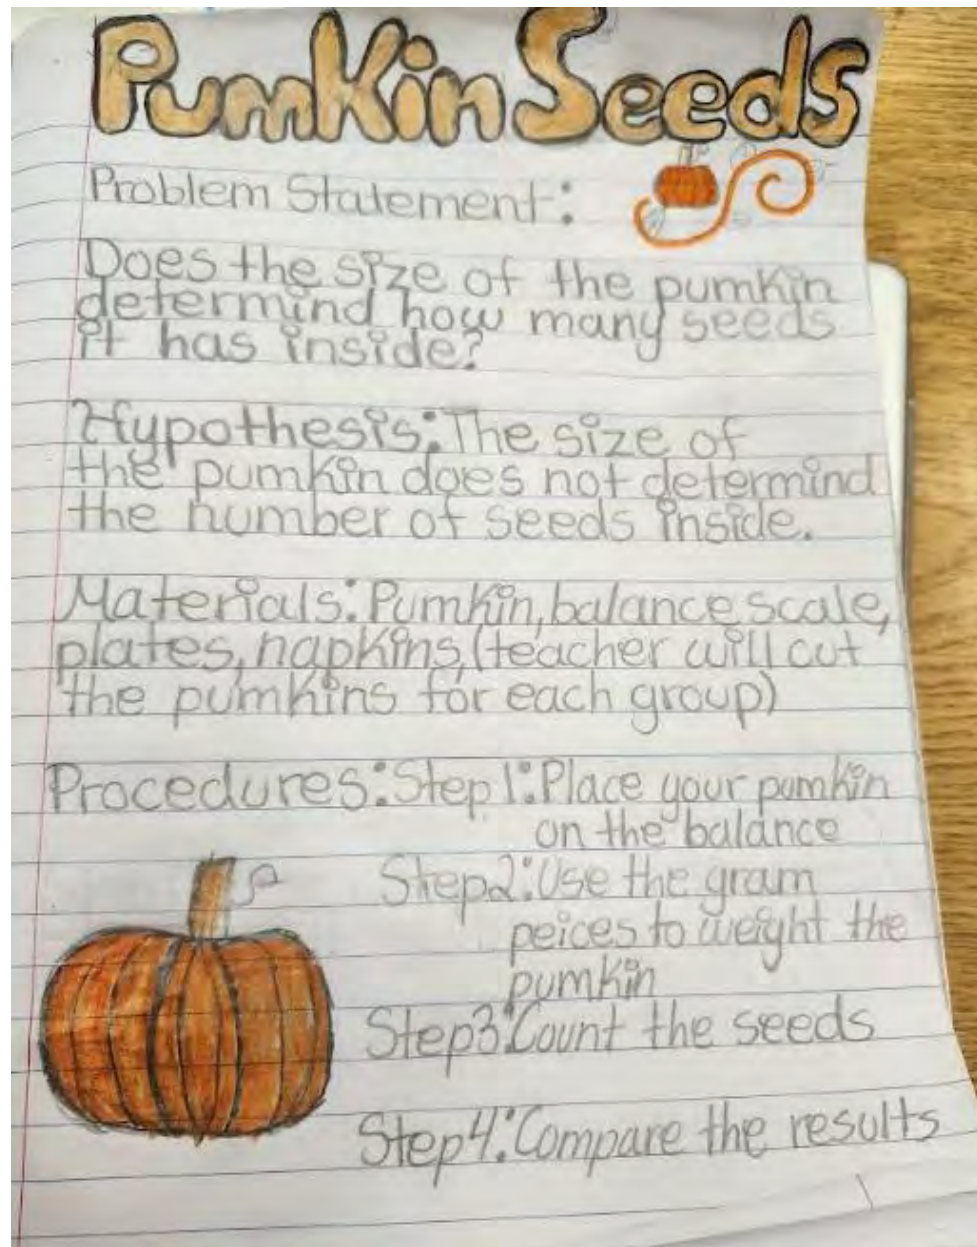 Pumkin Seeds
Problem Statement:
Does the size of the pumkin
determind how many seeds
it has inside?
Hypothesis: The size of
the pumkin does not determind
the number of seeds inside.
Materials: Pumkin, balance scale,
plates, napkins, (teacher will cut
the pumkins for each group)
Procedures: Step 1: Place your pumkin
on the balance
Step2: Use the gram
peices to weight the
pumkin
Step3: Count the seeds
Step4: Compare the results